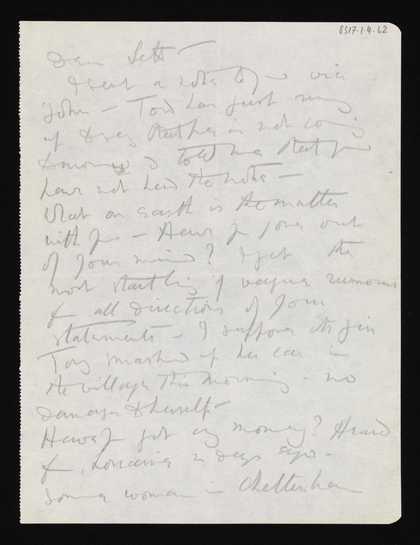 8317.1.4.62
Dear Sett –
I sent a note to you via
John – Tom has just rung
up & says that he is not coming
& told me that you
have not had the note –
What on earth is the matter
with you – Have you gone out
of your mind? I get the
most startling & vague rumours
f all directions of your
statements – I suppose it's gin
Tony smashed up her car in
the village this morning – no
damage to herself –
Have you got any money? Heard
f. 2 days ago –
Some woman in Cheltenham